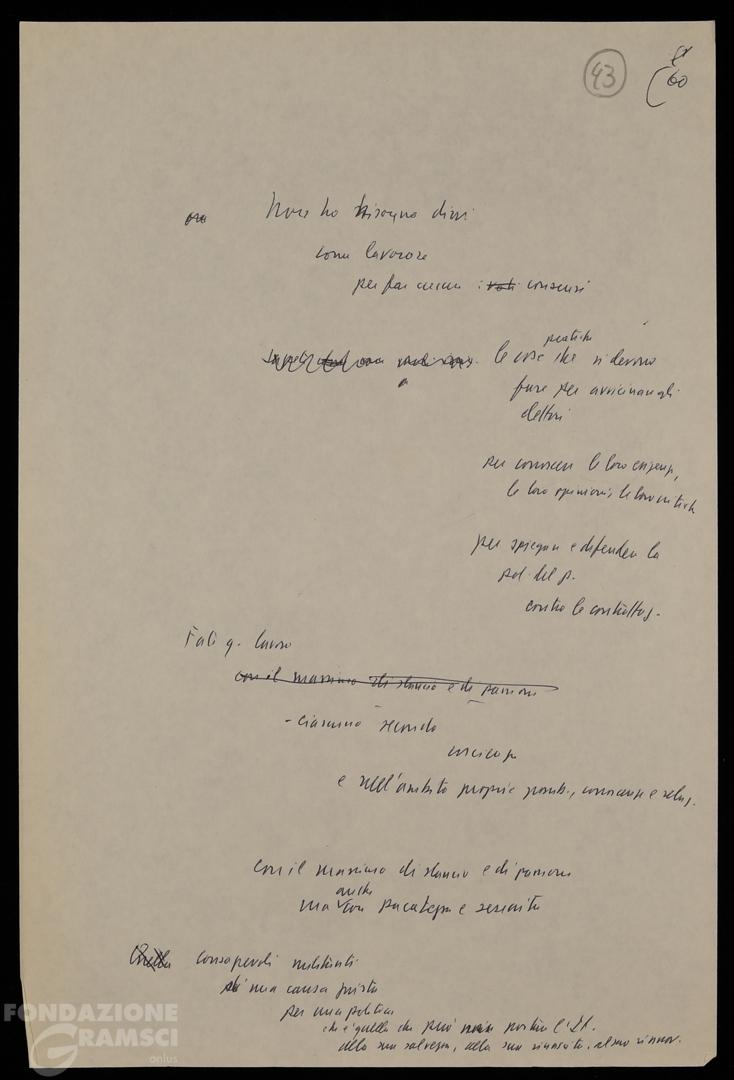 43
60
ora Non ho bisogno dirvi
come lavorare
per far crescere i voti consensi
pratiche
le cose che si devono
fare per avvicinare gli
elettori
per conoscere le loro esigenze,
le loro opinioni, le loro critiche
per spiegare e difendere la
pol. del p.
contro le contraffaz.
Fate q. lavoro
con il massimo di slancio e di passione
- ciascuno secondo
coscienza
e nell'ambito proprie possib., conoscenze e relaz.
con il massimo di slancio e di passione
anche
ma con pacatezza e serenità
Quella consapevoli militanti
di una causa giusta
per una politica
che è quella che può portare l'It.
alla sua salvezza, alla sua rinascita, al suo rinnov.
FONDAZIONE
GRAMSCI
onlus